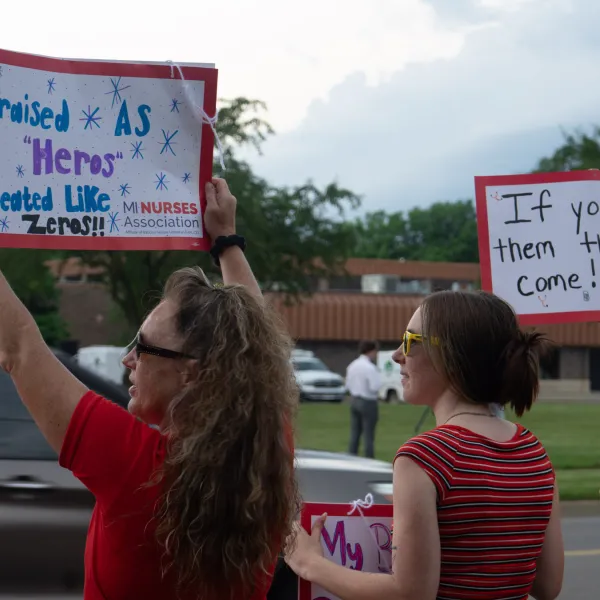 raised As
"Heros"
eated Like
Zeros!!
MI NURSES
Association
If yo
them th
come!
My B